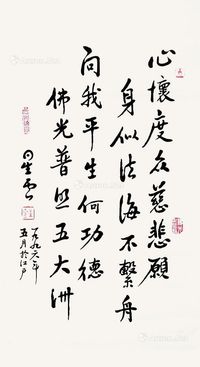 心懷度众慈悲願
身似法海不繫舟
问我平生何功德
佛光普照五大洲
星云
一九九六年
五月於江戶